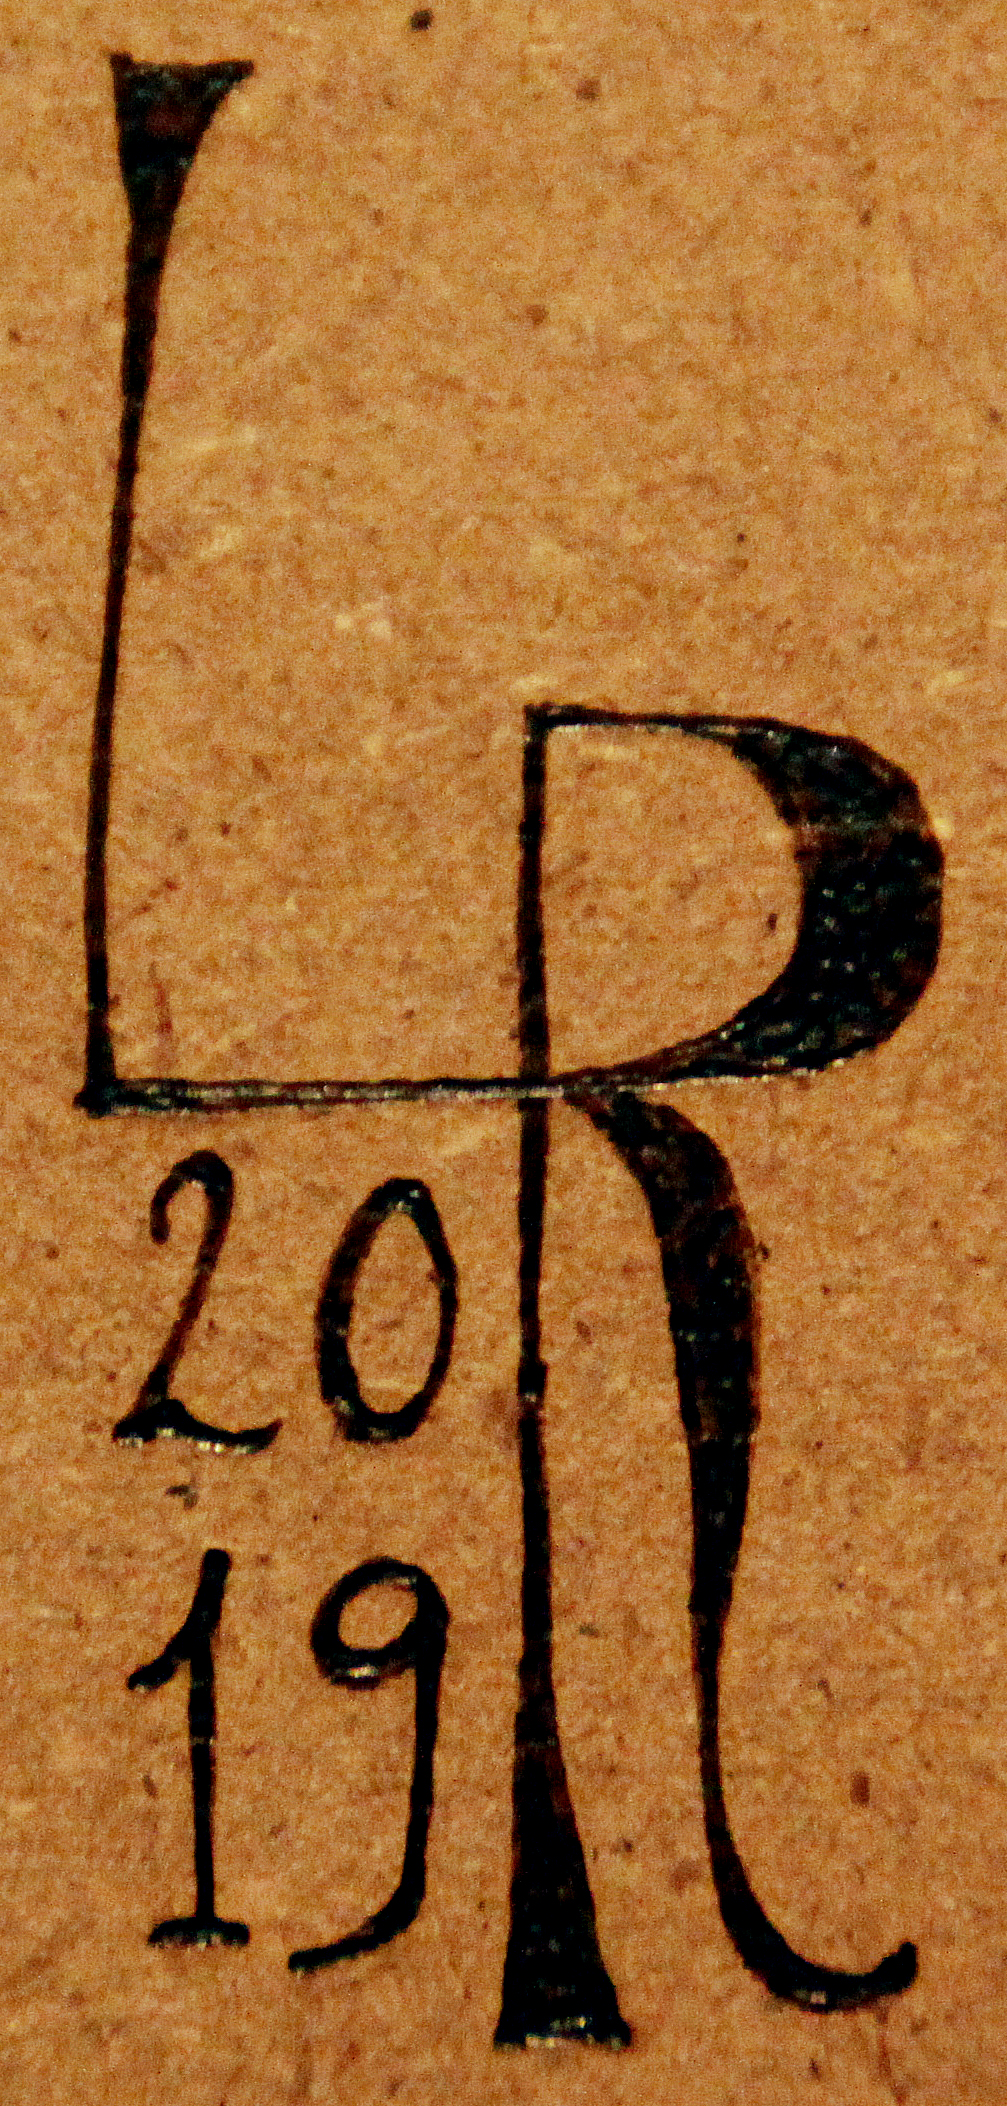 LR
20
19